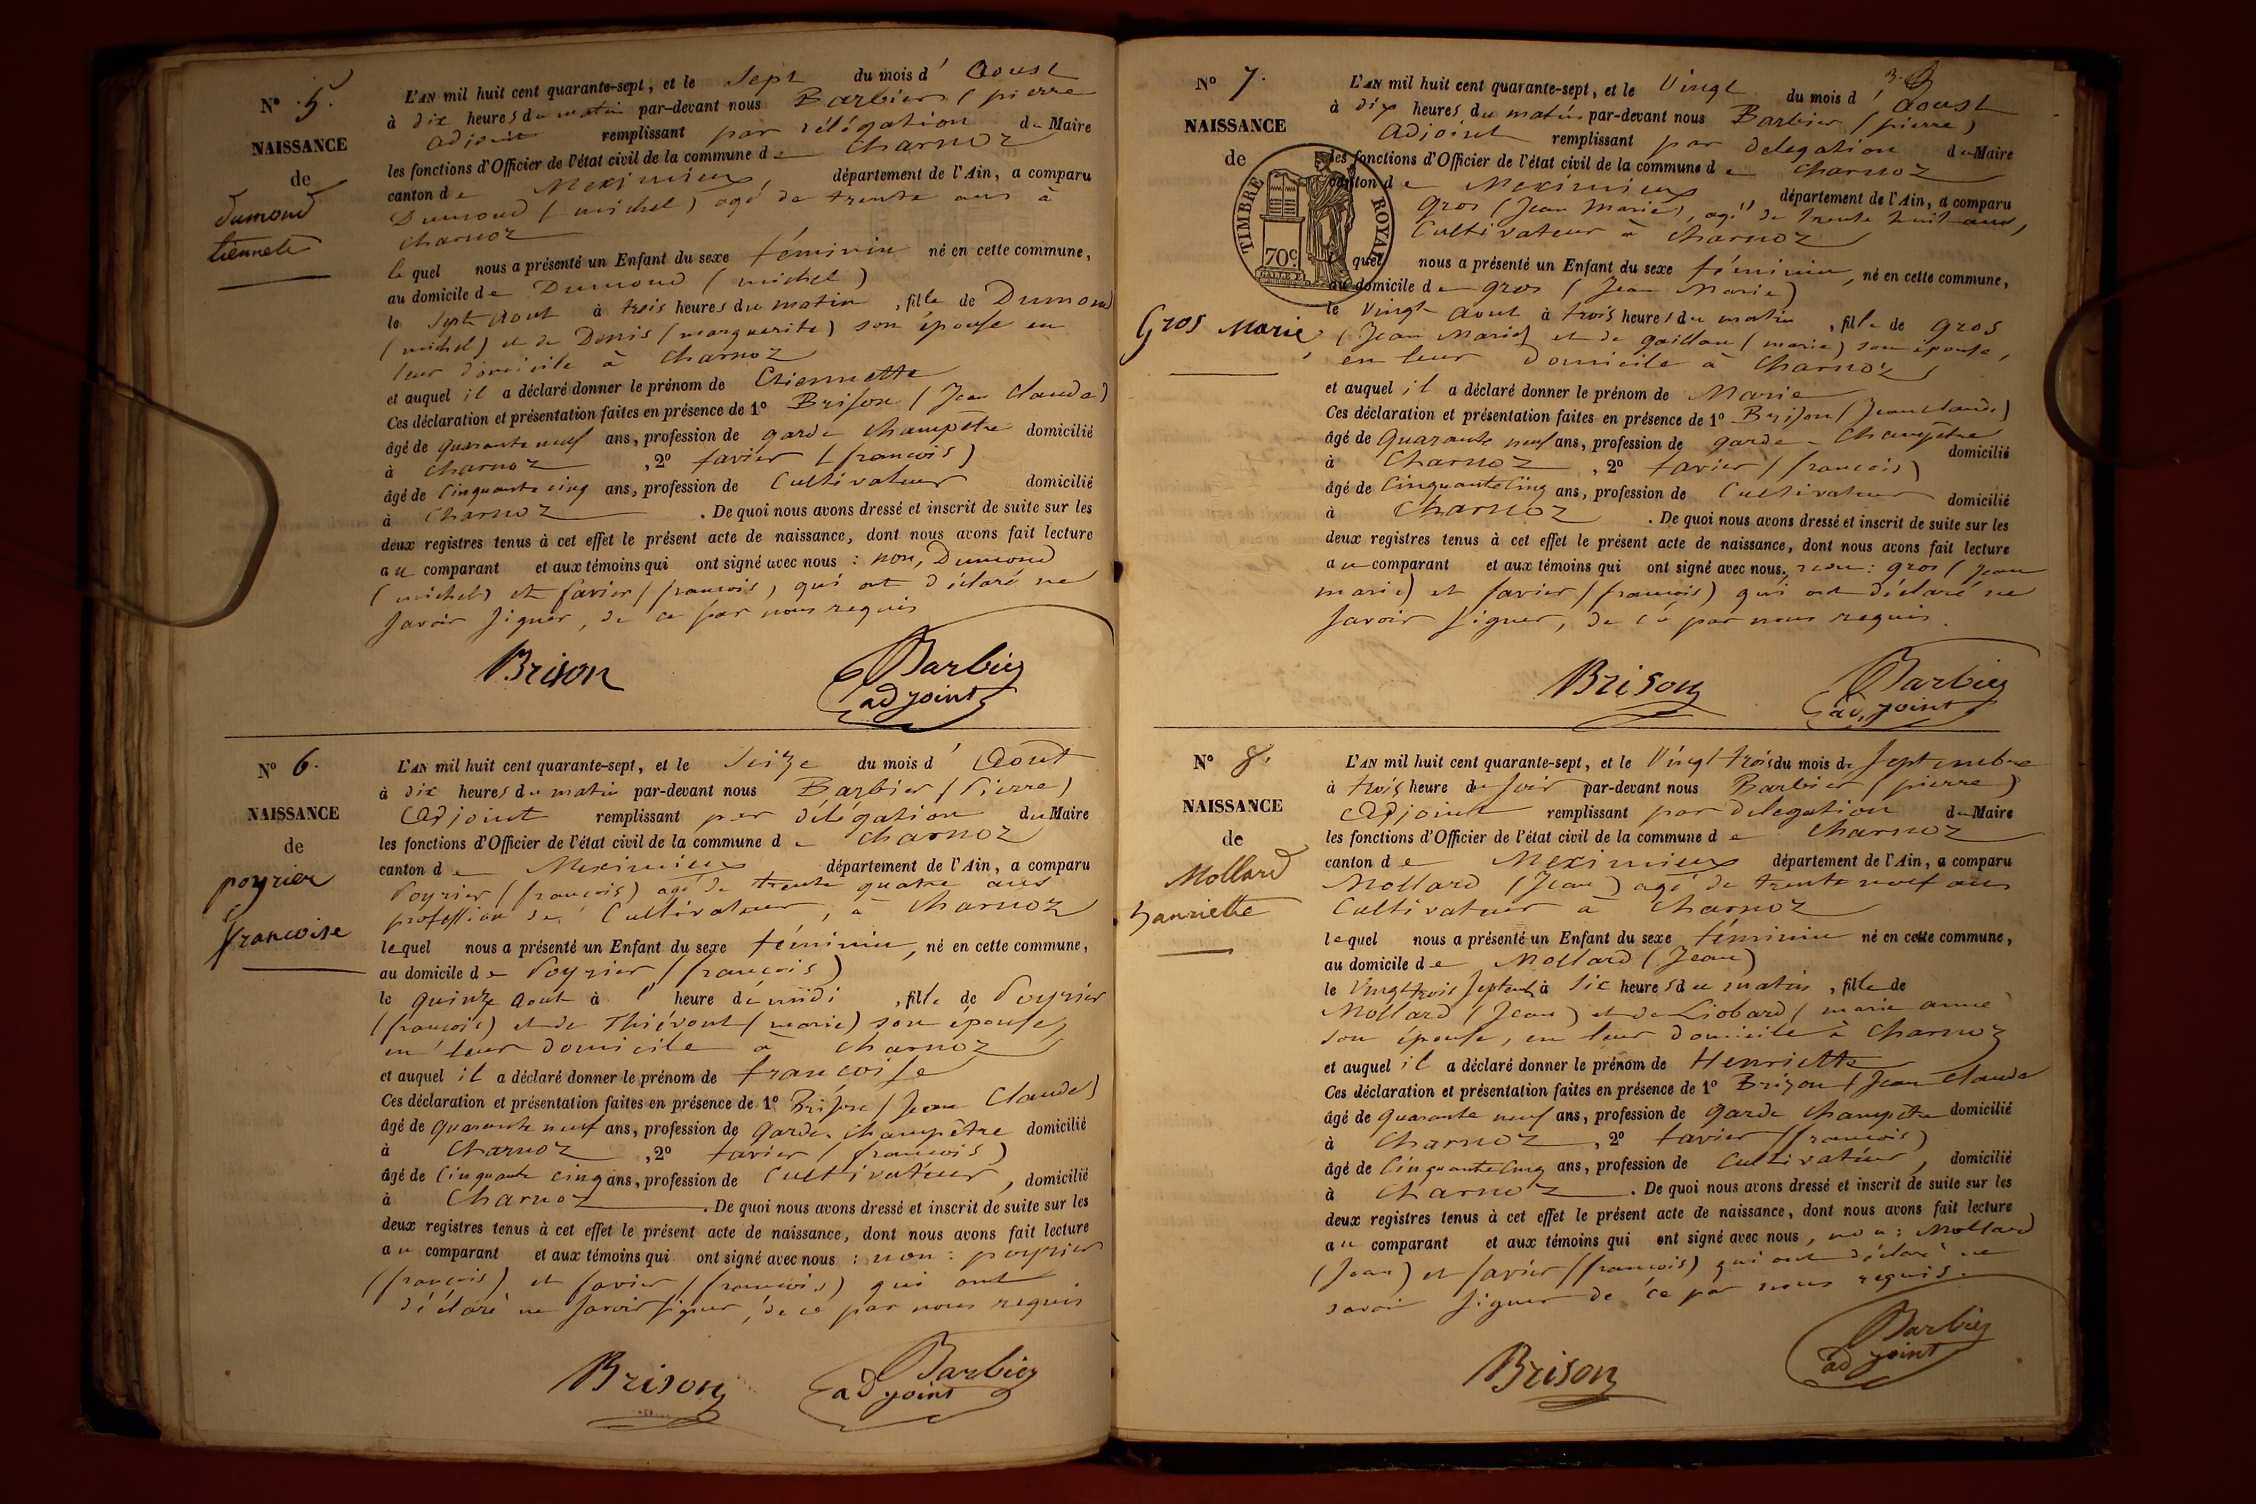 N° 5.
NAISSANCE
de
Dumond
tiennete
L'AN mil huit cent quarante-sept, et le Sept du mois d'Aoust
à dix heures du matin par-devant nous Barbier (pierre
adjoint remplissant par délégation du Maire
les fonctions d'Officier de l'état civil de la commune de Charnoz
canton de Meximieux, département de l'Ain, a comparu
Dumond (michel) agé de trente ans à
Charnoz
lequel nous a présenté un Enfant du sexe féminin né en cette commune,
au domicile de Dumond (michel)
le Sept Aout à trois heures du matin, fille de Dumond
(michel) et de Denis (marguerite) son épouse en
leur domicile à Charnoz
et auquel il a déclaré donner le prénom de Etiennette
Ces déclaration et présentation faites en présence de 1° Brison (Jean Claude)
âgé de quarante neuf ans, profession de garde champêtre domicilié
à Charnoz, 2° favier (francois)
âgé de Cinquante cinq ans, profession de Cultivateur domicilié
à Charnoz. De quoi nous avons dressé et inscrit de suite sur les
deux registres tenus à cet effet le présent acte de naissance, dont nous avons fait lecture
au comparant et aux témoins qui ont signé avec nous : non, Dumond
(michel) et favier (francois), qui ont déclaré ne
savoir signer, de ce par nous requis
Brison Barbier
adjoint
N° 6.
NAISSANCE
de
poyrier
francoise
L'AN mil huit cent quarante-sept, et le Seize du mois d'Aout
à dix heures du matin par-devant nous Barbier (Pierre)
Adjoint remplissant par délégation du Maire
les fonctions d'Officier de l'état civil de la commune de Charnoz
canton de Meximieux département de l'Ain, a comparu
Poyrier (françois) agé de trente quatre ans
profession de Cultivateur, à Charnoz
lequel nous a présenté un Enfant du sexe féminin, né en cette commune,
au domicile de Poyrier (françois)
le quinze Aout à heure de midi, fille de Poyrier
(françois) et de Thiévont (marie) son épouse,
en leur domicile à Charnoz
et auquel il a déclaré donner le prénom de francoise
Ces déclaration et présentation faites en présence de 1° Brison (Jean Claude)
âgé de quarante neuf ans, profession de garde champêtre domicilié
à Charnoz, 2° favier (francois)
âgé de Cinquante cinq ans, profession de Cultivateur, domicilié
à Charnoz. De quoi nous avons dressé et inscrit de suite sur les
deux registres tenus à cet effet le présent acte de naissance, dont nous avons fait lecture
au comparant et aux témoins qui ont signé avec nous : non : poyrier
(françois) et favier (francois) qui ont
déclaré ne savoir signer, de ce par nous requis
Brison Barbier
adjoint
N° 7.
NAISSANCE
de
TIMBRE ROYAL
70c
Gros Marie
L'AN mil huit cent quarante-sept, et le Vingt du mois d'Aoust
à dix heures du matin par-devant nous Barbier (pierre)
Adjoint remplissant par delegation du Maire
les fonctions d'Officier de l'état civil de la commune de Charnoz
canton de Meximieux département de l'Ain, a comparu
Gros (Jean Marie), agé de trente huit ans,
Cultivateur à Charnoz
lequel nous a présenté un Enfant du sexe féminin, né en cette commune,
au domicile de gros (Jean Marie)
le Vingt Aout à trois heures du matin, fille de gros
(Jean Marie) et de gaillau (marie) son épouse,
en leur domicile à Charnoz
et auquel il a déclaré donner le prénom de Marie
Ces déclaration et présentation faites en présence de 1° Brison (Jean Claude)
âgé de Quarante neuf ans, profession de garde-Champêtre domicilié
à Charnoz, 2° favier (francois)
âgé de Cinquante Cinq ans, profession de Cultivateur domicilié
à Charnoz. De quoi nous avons dressé et inscrit de suite sur les
deux registres tenus à cet effet le présent acte de naissance, dont nous avons fait lecture
au comparant et aux témoins qui ont signé avec nous, non : gros (Jean
marie) et favier (francois) qui ont déclaré ne
savoir signer, de ce par nous requis.
Brison Barbier
adjoint
N° 8.
NAISSANCE
de
Mollard
hanriette
L'AN mil huit cent quarante-sept, et le Vingt trois du mois de Septembre
à trois heure de soir par-devant nous Barbier (pierre)
Adjoint remplissant par delegation du Maire
les fonctions d'Officier de l'état civil de la commune de Charnoz
canton de Meximieux département de l'Ain, a comparu
Mollard (Jean) agé de trente neuf ans
Cultivateur à Charnoz
lequel nous a présenté un Enfant du sexe féminin né en cette commune,
au domicile de Mollard (Jean)
le Vingt trois Septemb à Six heures du matin, fille de
Mollard (Jean) et de Liobard (marie anne
son épouse, en leur domicile à Charnoz
et auquel il a déclaré donner le prénom de Henriette
Ces déclaration et présentation faites en présence de 1° Brison (Jean Claude
âgé de quarante neuf ans, profession de garde champêtre domicilié
à Charnoz, 2° favier (francois)
âgé de Cinquante Cinq ans, profession de Cultivateur, domicilié
à Charnoz. De quoi nous avons dressé et inscrit de suite sur les
deux registres tenus à cet effet le présent acte de naissance, dont nous avons fait lecture
au comparant et aux témoins qui ont signé avec nous, non : Mollard
(Jean) et favier (francois) qui ont déclaré ne
savoir signer de ce par nous requis.
Brison Barbier
adjoint